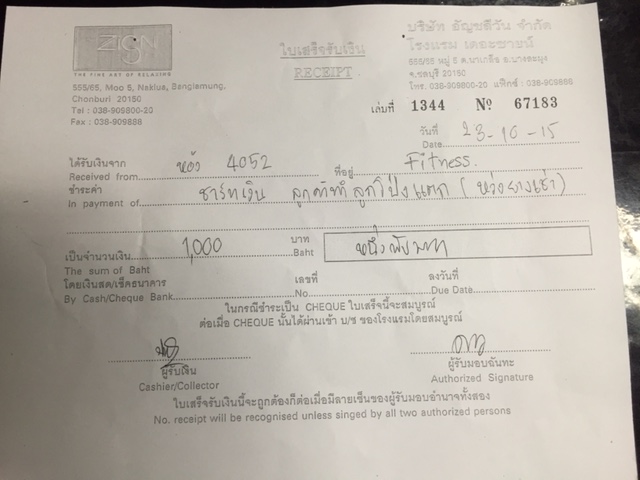 ZIGN
THE FINE ART OF RELAXING
555/65, Moo 5, Naklua, Banglamung,
Chonburi 20150
Tel : 038-909800-20
Fax : 038-909888
ใบเสร็จรับเงิน
RECEIPT
บริษัท อัญชลีวัน จำกัด
โรงแรม เดอะซายน์
555/65 หมู่ 5 ต.นาเกลือ อ.บางละมุง
จ.ชลบุรี 20150
โทร. 038-909800-20 แฟ็กซ์ : 038-909888
เล่มที่ 1344 Nº 67183
วันที่ 23-10-15
Date
ได้รับเงินจาก ห้อง 4052 ที่อยู่ Fitness.
Received from
ชำระค่า ชาร์ทเงิน ลูกค้าทำลูกโป่งแตก (ห่วงยางเช่า)
In payment of
เป็นจำนวนเงิน 1,000 บาท หนึ่งพันบาท
The sum of Baht Baht
โดยเงินสด/เช็คธนาคาร เลขที่ ลงวันที่
By Cash/Cheque Bank No. Due Date
ในกรณีชำระเป็น CHEQUE ใบเสร็จนี้จะสมบูรณ์
ต่อเมื่อ CHEQUE นั้นได้ผ่านเข้า บ/ช ของโรงแรมโดยสมบูรณ์
ผู้รับเงิน ผู้รับมอบฉันทะ
Cashier/Collector Authorized Signature
ใบเสร็จรับเงินนี้จะถูกต้องก็ต่อเมื่อมีลายเซ็นของผู้รับมอบอำนาจทั้งสอง
No. receipt will be recognised unless singed by all two authorized persons